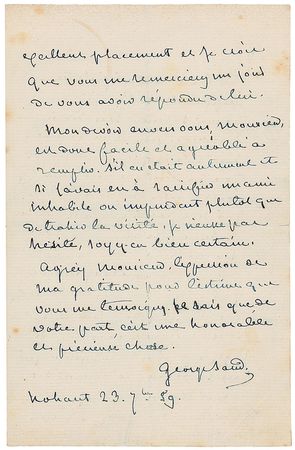 excellent placement et je crois
que vous me remercierez un jour
de vous avoir répondu de lui.
Mon devoir envers vous, monsieur,
est donc facile et agréable à
remplir. S'il en était autrement et
si j'avais eu à sacrifier un ami
inhabile ou imprudent plutot que
de trahir la vérité, je n'eusse pas
hésité, soyez en bien certain.
Agréez Monsieur, l'expression de
ma gratitude pour l'estime que
vous me temoignez. Je sais que de
votre part, c'est une honorable
et précieuse chose.
George Sand.
Nohant 23. 7bre 59.